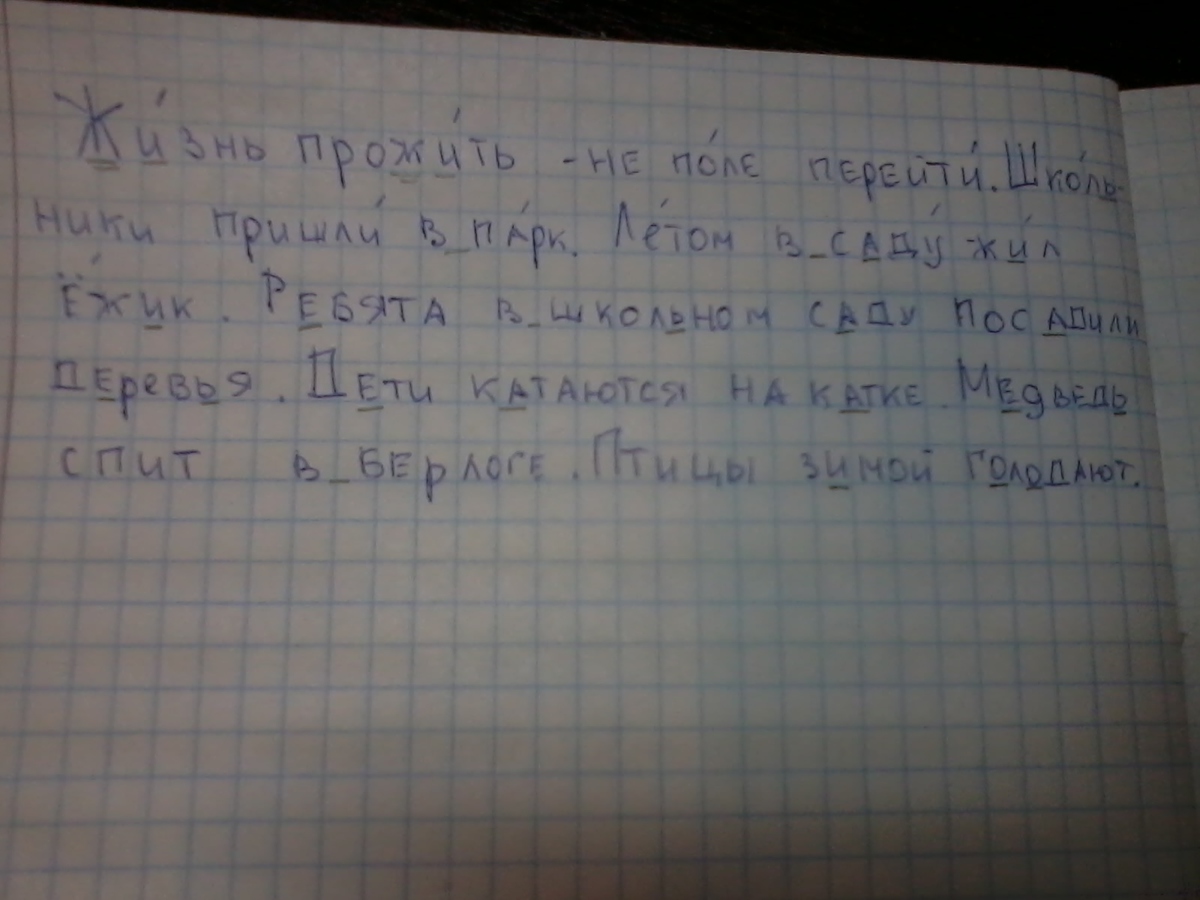 Жи́знь прожи́ть - не по́ле перейти́. Шко́ль-
ники пришли́ в_па́рк. Ле́том в_саду́ жи́л
Ёжик. Ребята в_школьном саду посадили
деревья. Дети катаются на катке. Медведь
спит в_берлоге. Птицы зимой голодают.